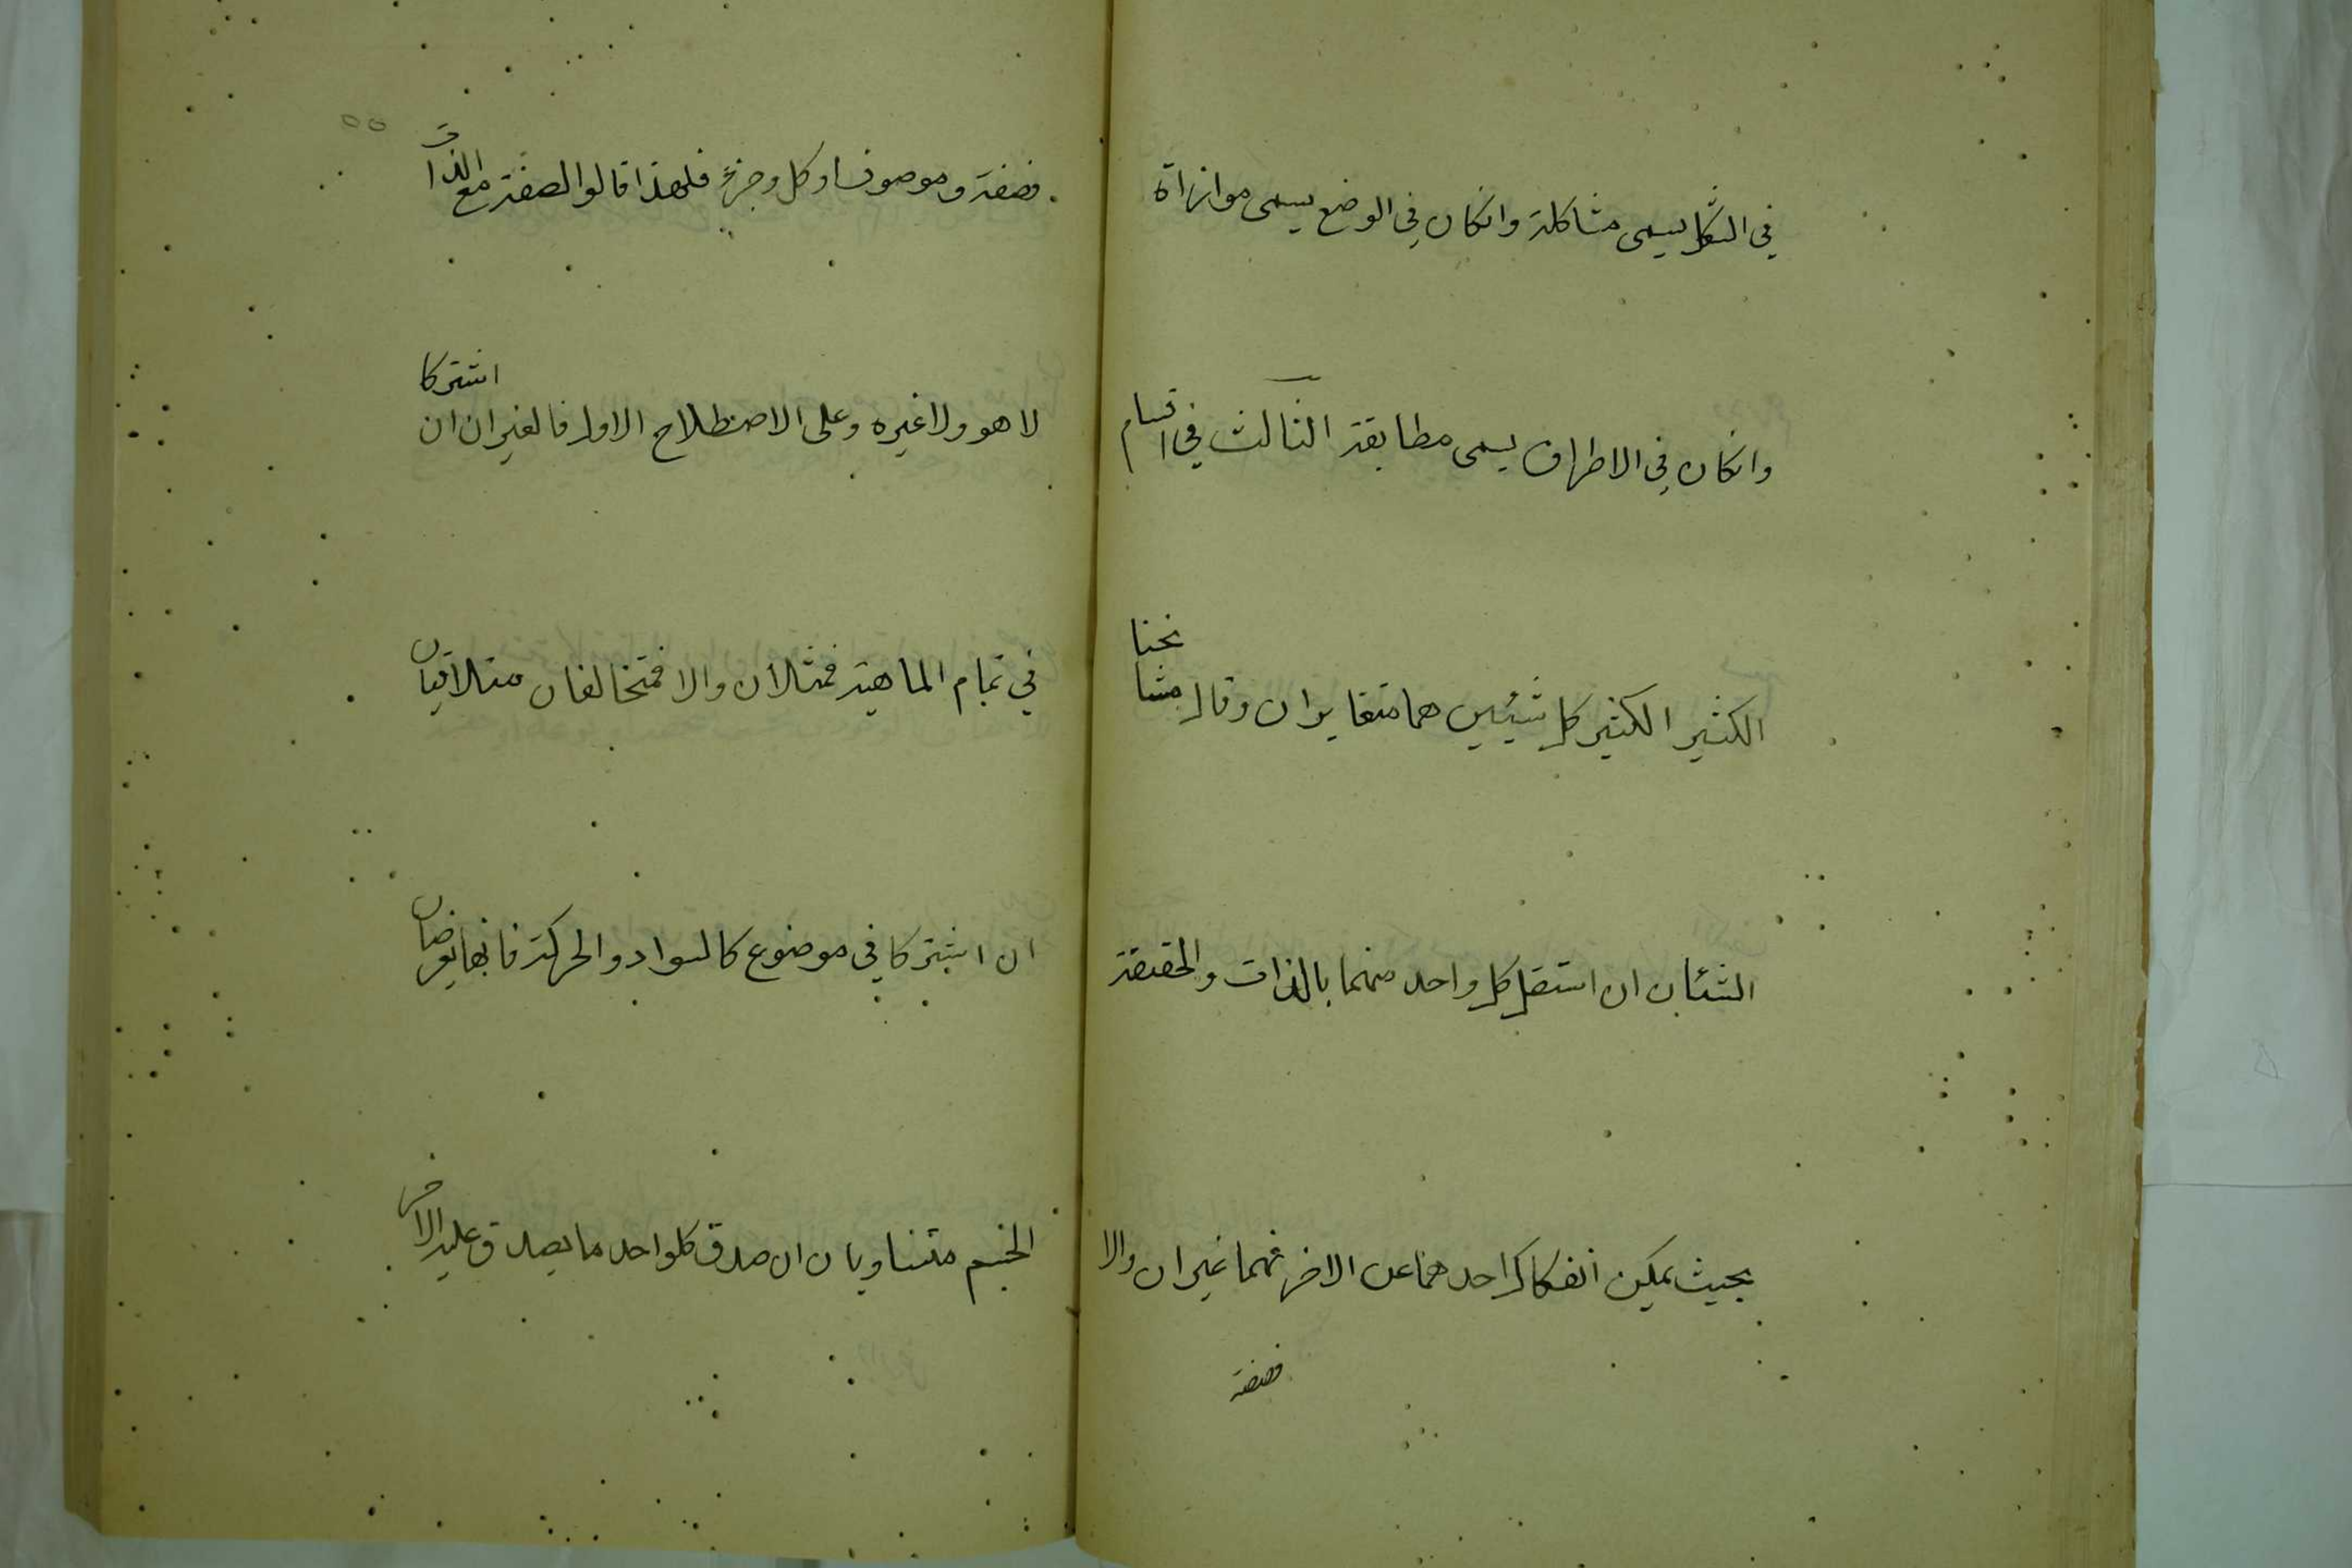 في الشكل يسمى مشاكلة وانكان في الوضع يسمى موازاة
وانكان في الاطراف يسمى مطابقة الثالث في اقسام
الكثير الكثير كل شيئين هما متغايران وقال مشايخنا
الشئان ان استقل كل واحد منهما بالذات والحقيقة
بحيث يمكن انفكاك احدهما عن الاخر فهما غيران والا
فصفة
فصفة وموصوف او كل وجزؤ فلهذا قالوا الصفة مع الذات
لا هو ولا غيره وعلى الاصطلاح الاول فالغيران ان اشتركا
في تمام الماهية فمثلان والا فمتخالفان متلاقيان
ان اشتركا في موضوع كالسواد والحركة فانهما يعرضان
الجسم متساويان ان صدق كلواحد ما يصدق عليه الاخر